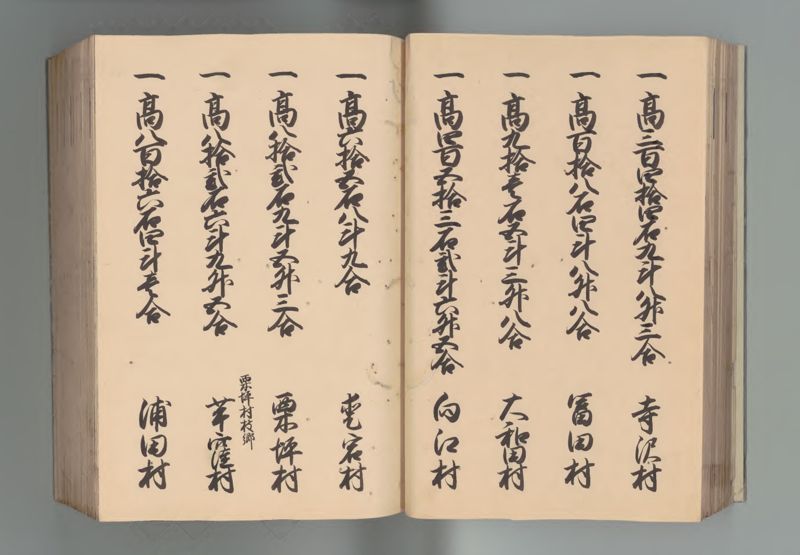 一 高三百四拾四石九斗八升三合 寺沢村
一 高百拾八石四斗八升八合 冨田村
一 高九拾壱石五斗三升八合 大和田村
一 高四百五拾三石弐斗六升五合 向江村
一 高六拾五石八斗九合 村
一 高八拾弐石九斗五升三合 栗坪村
栗坪村枝郷
一 高八拾弐石六斗九升五合 村
一 高八百拾六石四斗壱合 浦田村